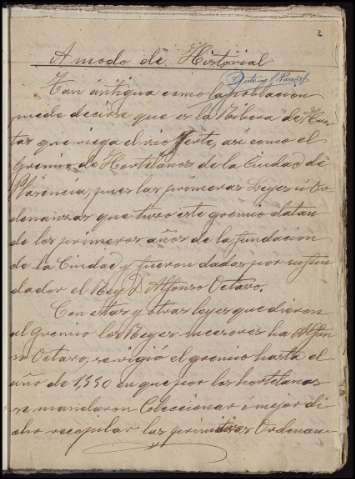 2
A modo de Historial
Tan ántigua como la poblacion
puede decirse que es la Ribera de Huer-
tas que riega el rio Jerte, así como el
Gremio de Hortelanos de la Ciudad de
Plasencia, pues las primeras Leyes ú Or-
denanzas que tuvo este gremio datan
de los primeros años de la fundacion
de la Ciudad y fueron dadas por su fun-
dador el Rey D. Alfonso Octavo.
Con estas y otras leyes que dieron
al gremio los Reyes sucesores ha Alfon-
so Octavo, se rigió el gremio hasta el
año de 1550 en que por los hortelanos
se mandaron Coleccionar ó mejor di-
cho recopilar las primitivas Ordenan-